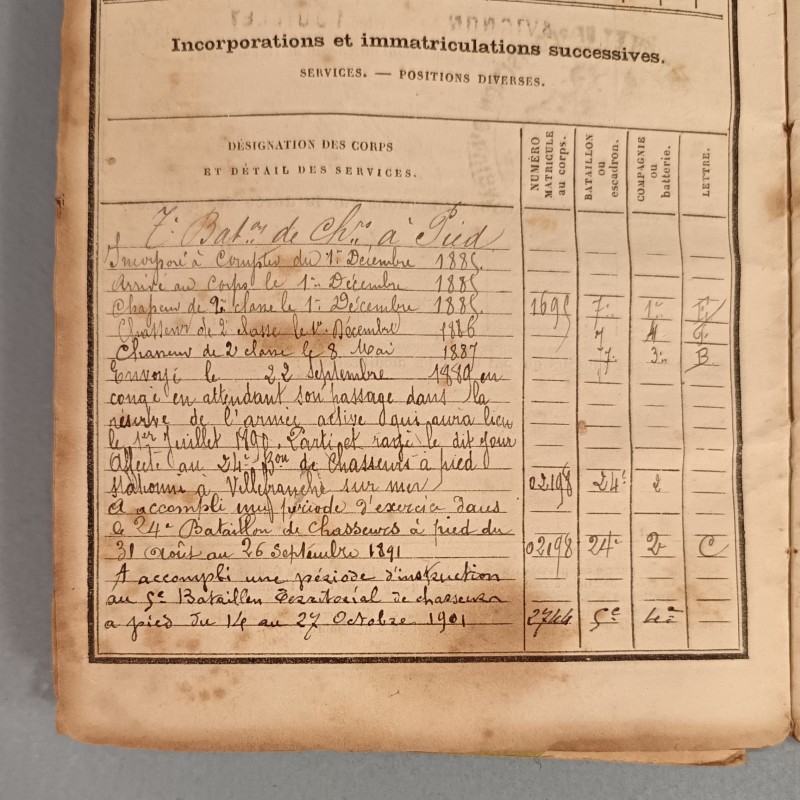 Incorporations et immatriculations successives.
SERVICES. — POSITIONS DIVERSES.
DÉSIGNATION DES CORPS
ET DÉTAIL DES SERVICES.
NUMÉRO
MATRICULE
au corps.
BATAILLON
ou
escadron.
COMPAGNIE
ou
batterie.
LETTRE.
7e Baton de Chrs à Pied
Incorporé à Compter du 1er Décembre 1885
Arrivé au Corps le 1er Décembre 1885
Chasseur de 2e classe le 1er Décembre 1885 1695 7e 1re
Chasseur de 2e classe le 1er Décembre 1886 7 4
Chasseur de 2e classe le 8 Mai 1887 7e 3e B
Envoyé le 22 Septembre 1889 en
congé en attendant son passage dans la
réserve de l'armée active qui aura lieu
le 1er Juillet 1890. Parti et rayé le dit jour
Affecté au 24e Bon de Chasseurs à pied
stationné à Villefranche sur mer 02198 24e 2
A accompli une période d'exercice dans
le 24e Bataillon de Chasseurs à pied du
31 Août au 26 Septembre 1891 02198 24e 2e C
A accompli une période d'instruction
au 5e Bataillon Territorial de chasseurs
a pied du 14 au 27 Octobre 1901 2744 5e 4e